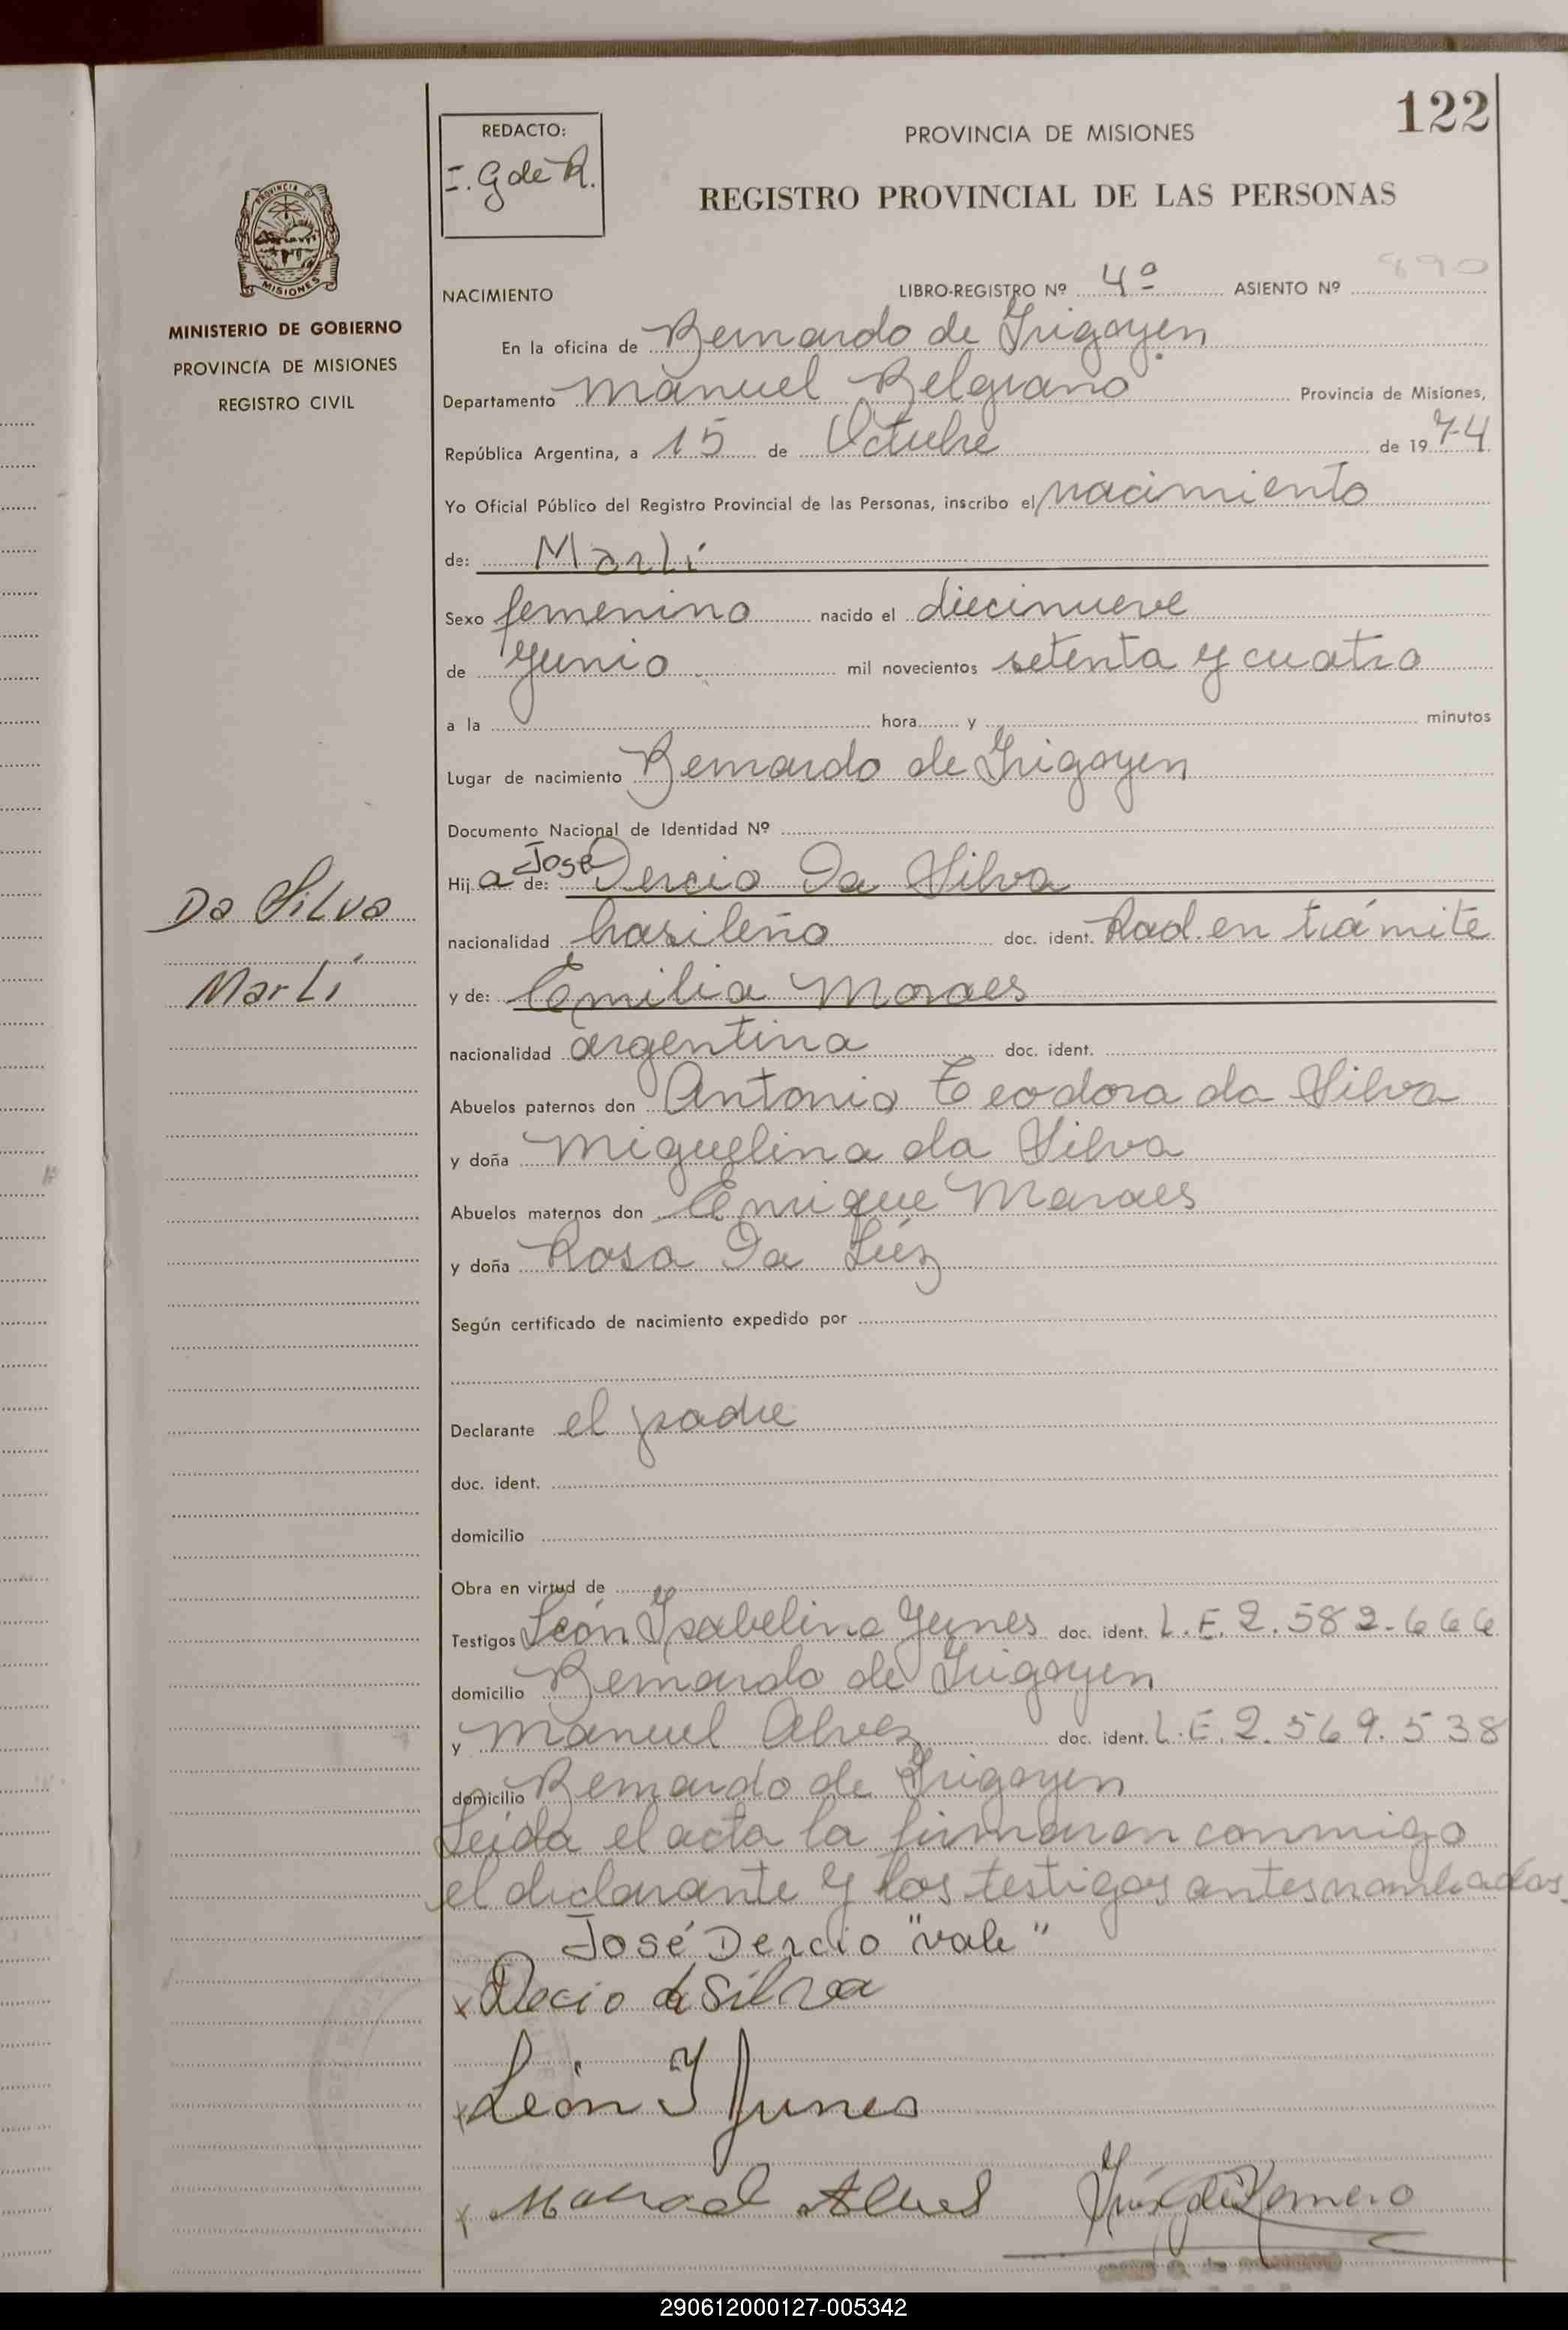 122
REDACTO:
I. G de R.
PROVINCIA DE MISIONES
REGISTRO PROVINCIAL DE LAS PERSONAS
PROVINCIA DE
MISIONES
MINISTERIO DE GOBIERNO
PROVINCIA DE MISIONES
REGISTRO CIVIL
NACIMIENTO
LIBRO-REGISTRO Nº 4º ASIENTO Nº 890
En la oficina de Bernardo de Irigoyen
Departamento Manuel Belgrano Provincia de Misiones,
República Argentina, a 15 de Octubre de 1974
Yo Oficial Público del Registro Provincial de las Personas, inscribo el nacimiento
de: Marlí
Sexo femenino nacido el diecinueve
de Junio mil novecientos setenta y cuatro
a la hora y minutos
Lugar de nacimiento Bernardo de Irigoyen
Documento Nacional de Identidad Nº
Hij a de: José Dercio Da Silva
Da Silva
nacionalidad brasileño doc. ident. Rad. en trámite
Marlí
y de: Emilia Moraes
nacionalidad argentina doc. ident.
Abuelos paternos don Antonio Teodoro da Silva
y doña Miguelina da Silva
Abuelos maternos don Enrique Moraes
y doña Rosa Da Lúz
Según certificado de nacimiento expedido por
Declarante el padre
doc. ident.
domicilio
Obra en virtud de
Testigos León Isabelino Yunes doc. ident. L.E. 2.582.666
domicilio Bernardo de Irigoyen
y Manuel Alvez doc. ident. L.E. 2.569.538
domicilio Bernardo de Irigoyen
Leída el acta la firmaron conmigo
el declarante y los testigos antes nombrados.
José Dercio "vale"
x Decio da Silva
x León I Junes
x Manoel Alves
de Romero
290612000127-005342